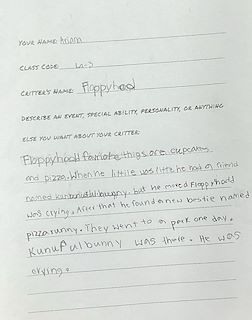 YOUR NAME: Ariam
CLASS CODE:
CRITTER'S NAME: Floppyhood
DESCRIBE AN EVENT, SPECIAL ABILITY, PERSONALITY, OR ANYTHING
ELSE YOU WANT ABOUT YOUR CRITTER:
Floppyhood favorite things are cupcakes
and pizza. When he little was little he had a friend
named kunufulbunny. but he moved Floppyhood
was crying. After that he found a new bestie named
pizza runny. They went to a park one day.
Kunufulbunny was there. He was
crying.